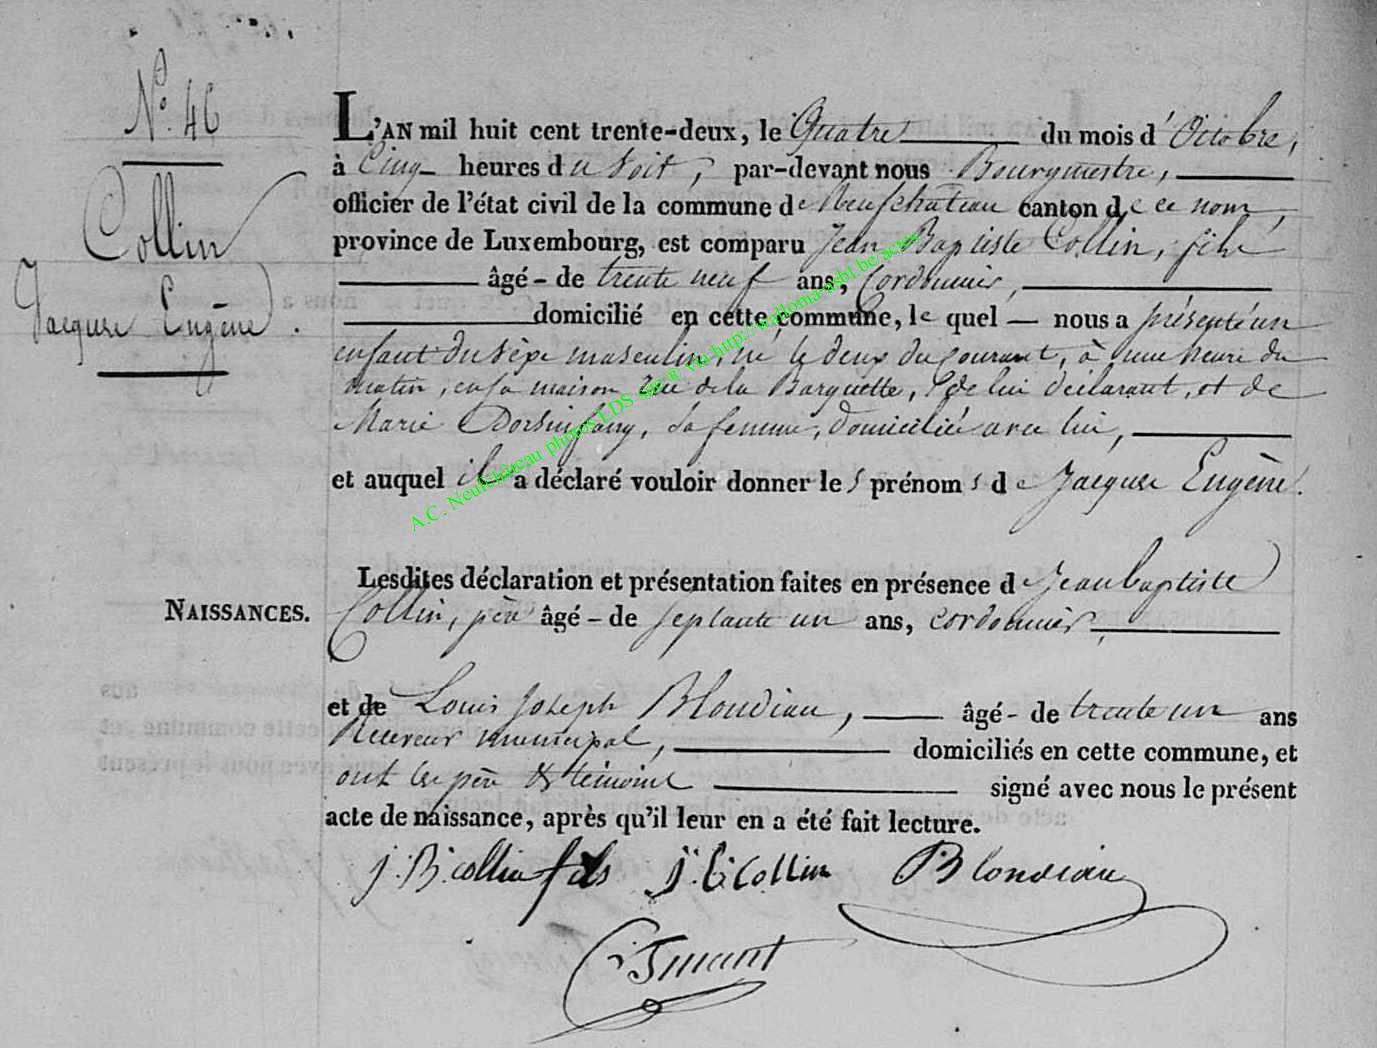 N.º 46
Collin
Jacques Eugène.
L'AN mil huit cent trente-deux, le Quatre du mois d'Octobre,
à Cinq heures du Soir, par-devant nous Bourgmestre,
officier de l'état civil de la commune de Neufchâteau canton de ce nom,
province de Luxembourg, est comparu Jean Baptiste Collin, fils
âgé - de trente neuf ans, Cordonnier,
domicilié en cette commune, le quel — nous a présenté un
enfant du sèxe masculin, né le deux du courant, à une heure du
matin, en sa maison rue de la Barquette, de lui déclarant, et de
Marie, sa femme, domiciliée avec lui,
et auquel il a déclaré vouloir donner les prénoms de Jacques Eugène.
NAISSANCES.
Lesdites déclaration et présentation faites en présence de Jean baptiste
Collin, père âgé - de septante un ans, cordonnier,
et de Louis Joseph Blondiau, âgé - de trente un ans
Receveur municipal, domiciliés en cette commune, et
ont les père & témoins signé avec nous le présent
acte de naissance, après qu'il leur en a été fait lecture.
J. B. collin fils J. b. Collin Blondiau
A.C. Neufchâteau photos LDS sur ® via http://wallonia-asbl.be/actes